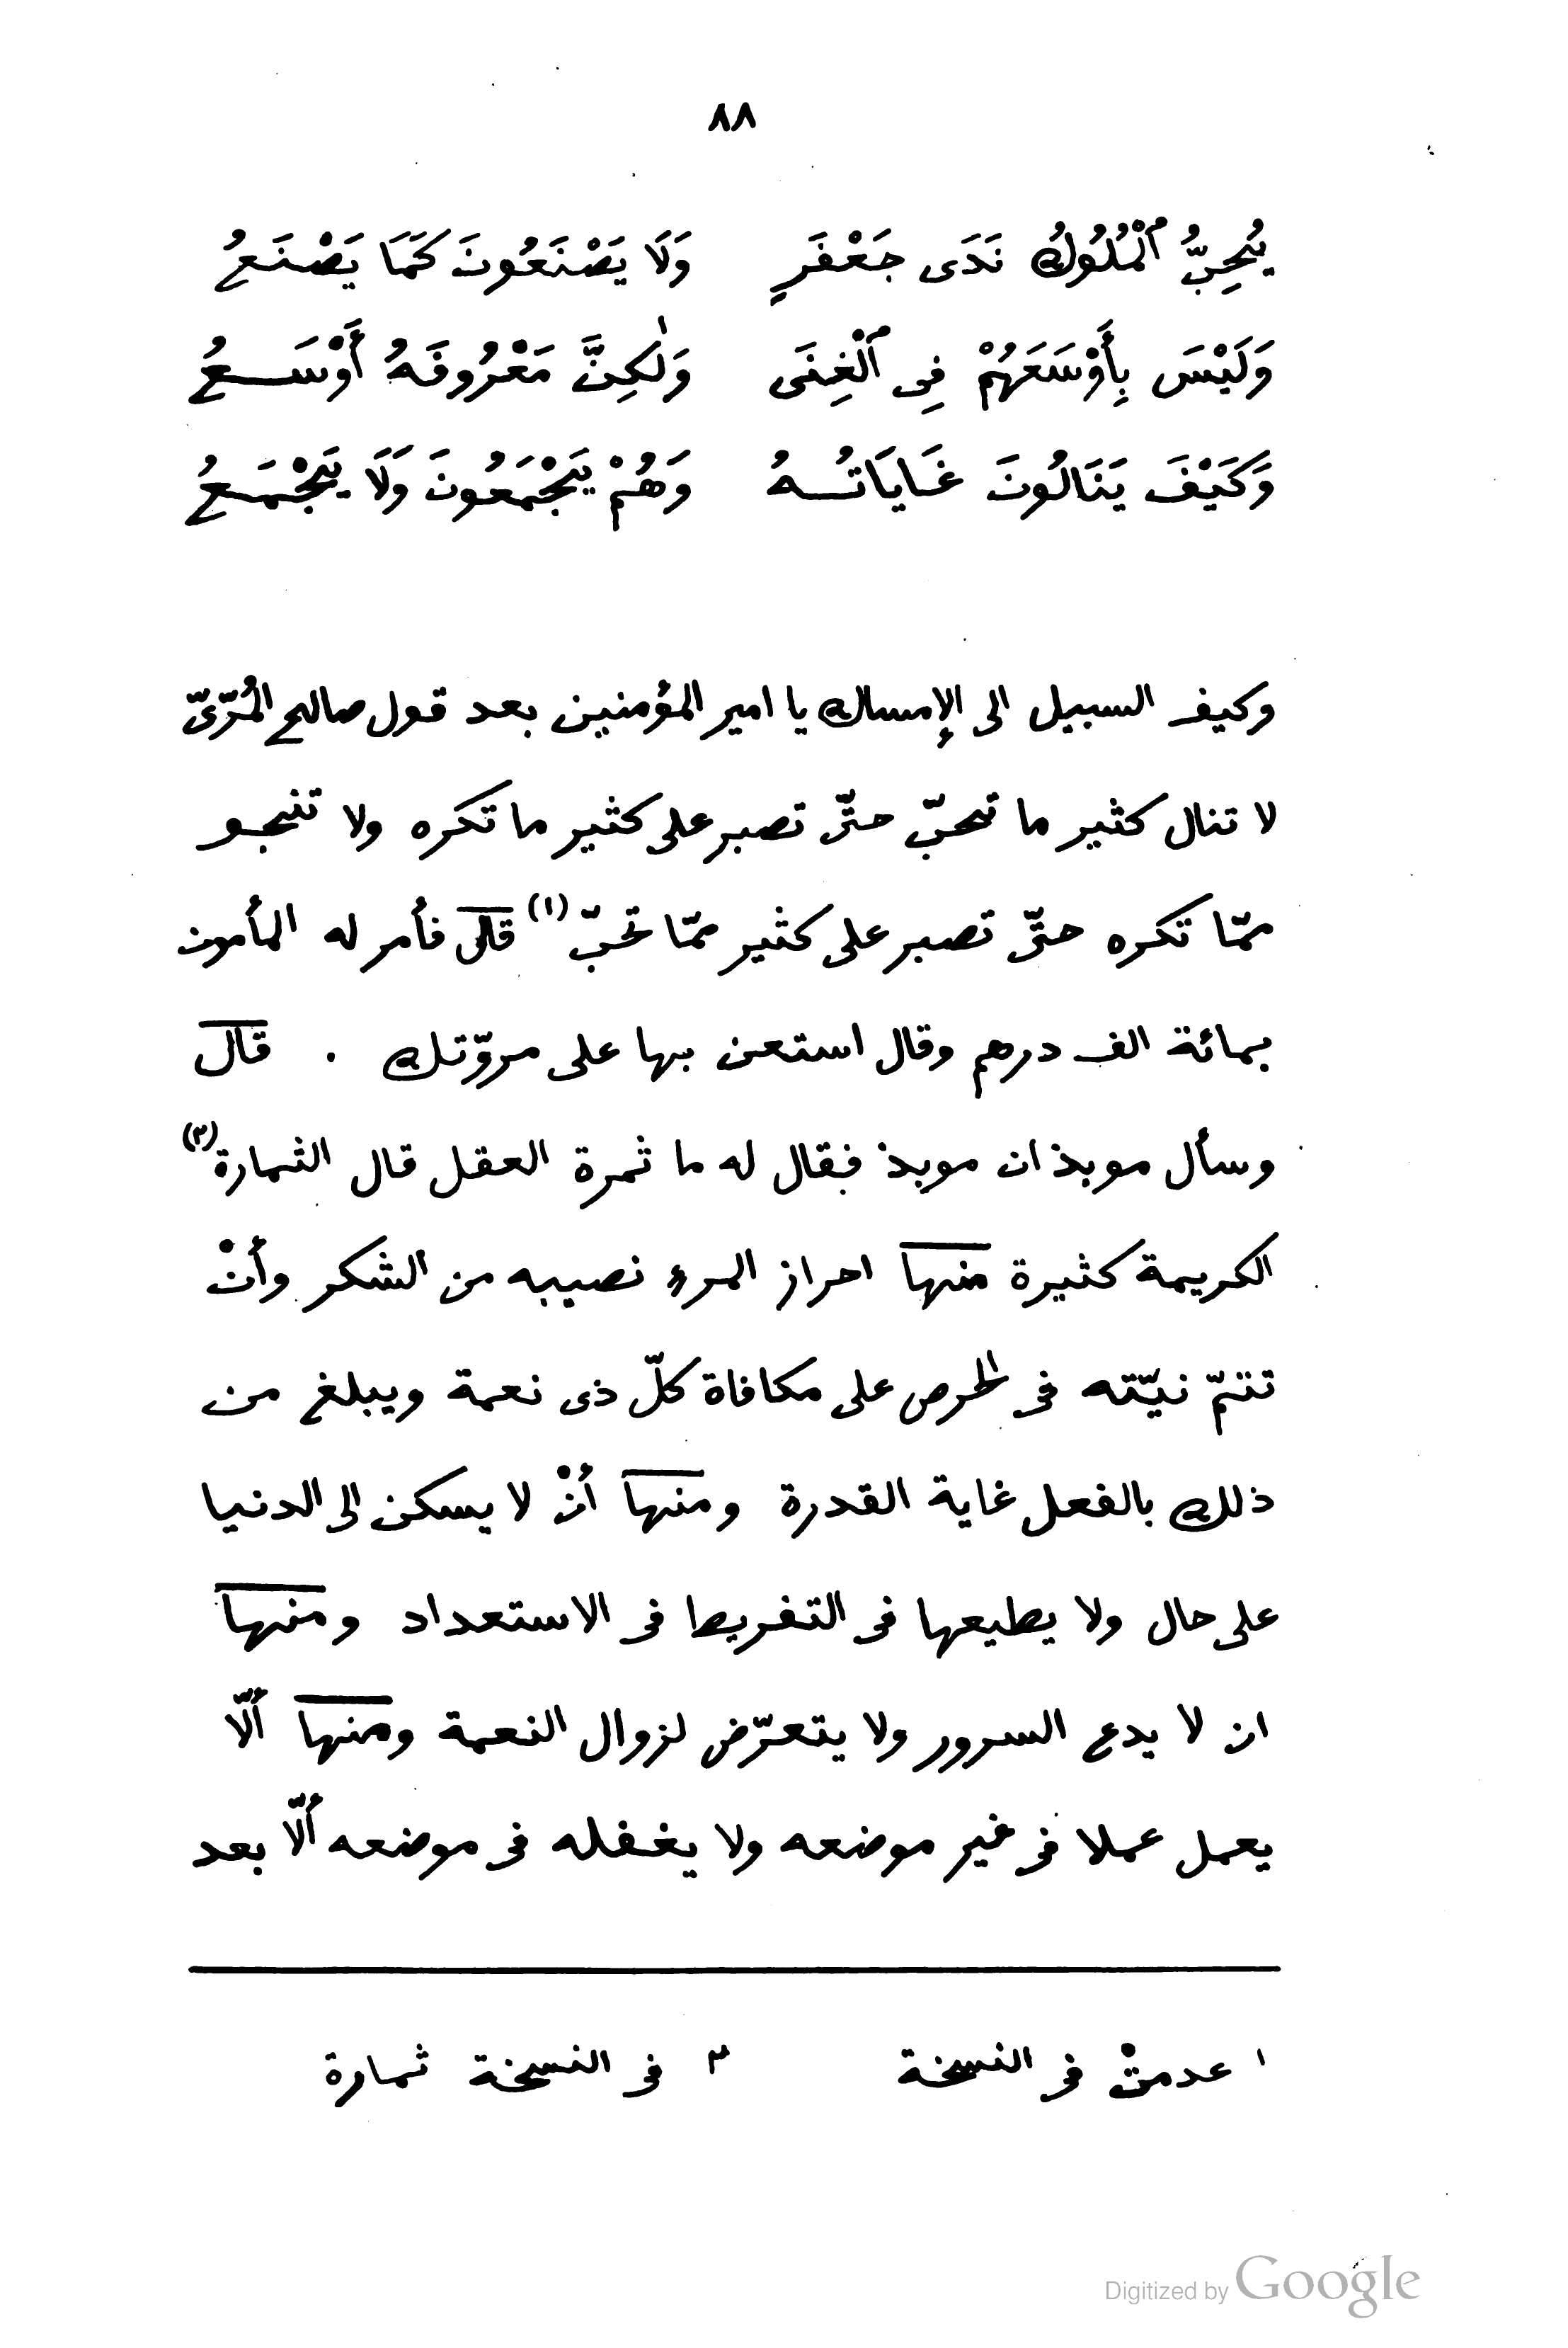 ٨٨
يُحِبُّ ٱلْمُلُوكُ نَدَى جَعْفَرٍ وَلَا يَصْنَعُونَ كَمَا يَصْنَعُ
وَلَيْسَ بِأَوْسَعَهُمْ فِى ٱلْغِنَى وَلٰكِنَّ مَعْرُوفَهُ أَوْسَعُ
وَكَيْفَ يَنَالُونَ غَايَاتُهُ وَهُمْ يَجْمَعُونَ وَلَا يَجْمَعُ
وكيف السبيل الى الإمساك يا امير المؤمنين بعد قول صالح المُرّىّ
لا تنال كثير ما تحبّ حتّى تصبر على كثير ما تكره ولا تنجو
ممّا تكره حتّى تصبر على كثير ممّا تحبّ (١) قال فأمر له المأمون
بمائة الف درهم وقال استعن بها على مروّتك . قال
وسأل موبذان موبذ فقال له ما ثمرة العقل قال الثمارة (٢)
الكريمة كثيرة منها احراز المرء نصيبه من الشكر وأنْ
تتمّ نيّته فى الحرص على مكافاة كلّ ذى نعمة ويبلغ من
ذلك بالفعل غاية القدرة ومنها أنْ لا يسكن الى الدنيا
على حال ولا يطيعها فى التفريط فى الاستعداد ومنها
ان لا يدع السرور ولا يتعرّض لزوال النعمة ومنها ألّا
يعمل عملا فى غير موضعه ولا يغفله فى موضعه ألّا بعد
١ عدمتْ فى النسخة ٢ فى النسخة ثمارة
Digitized by Google